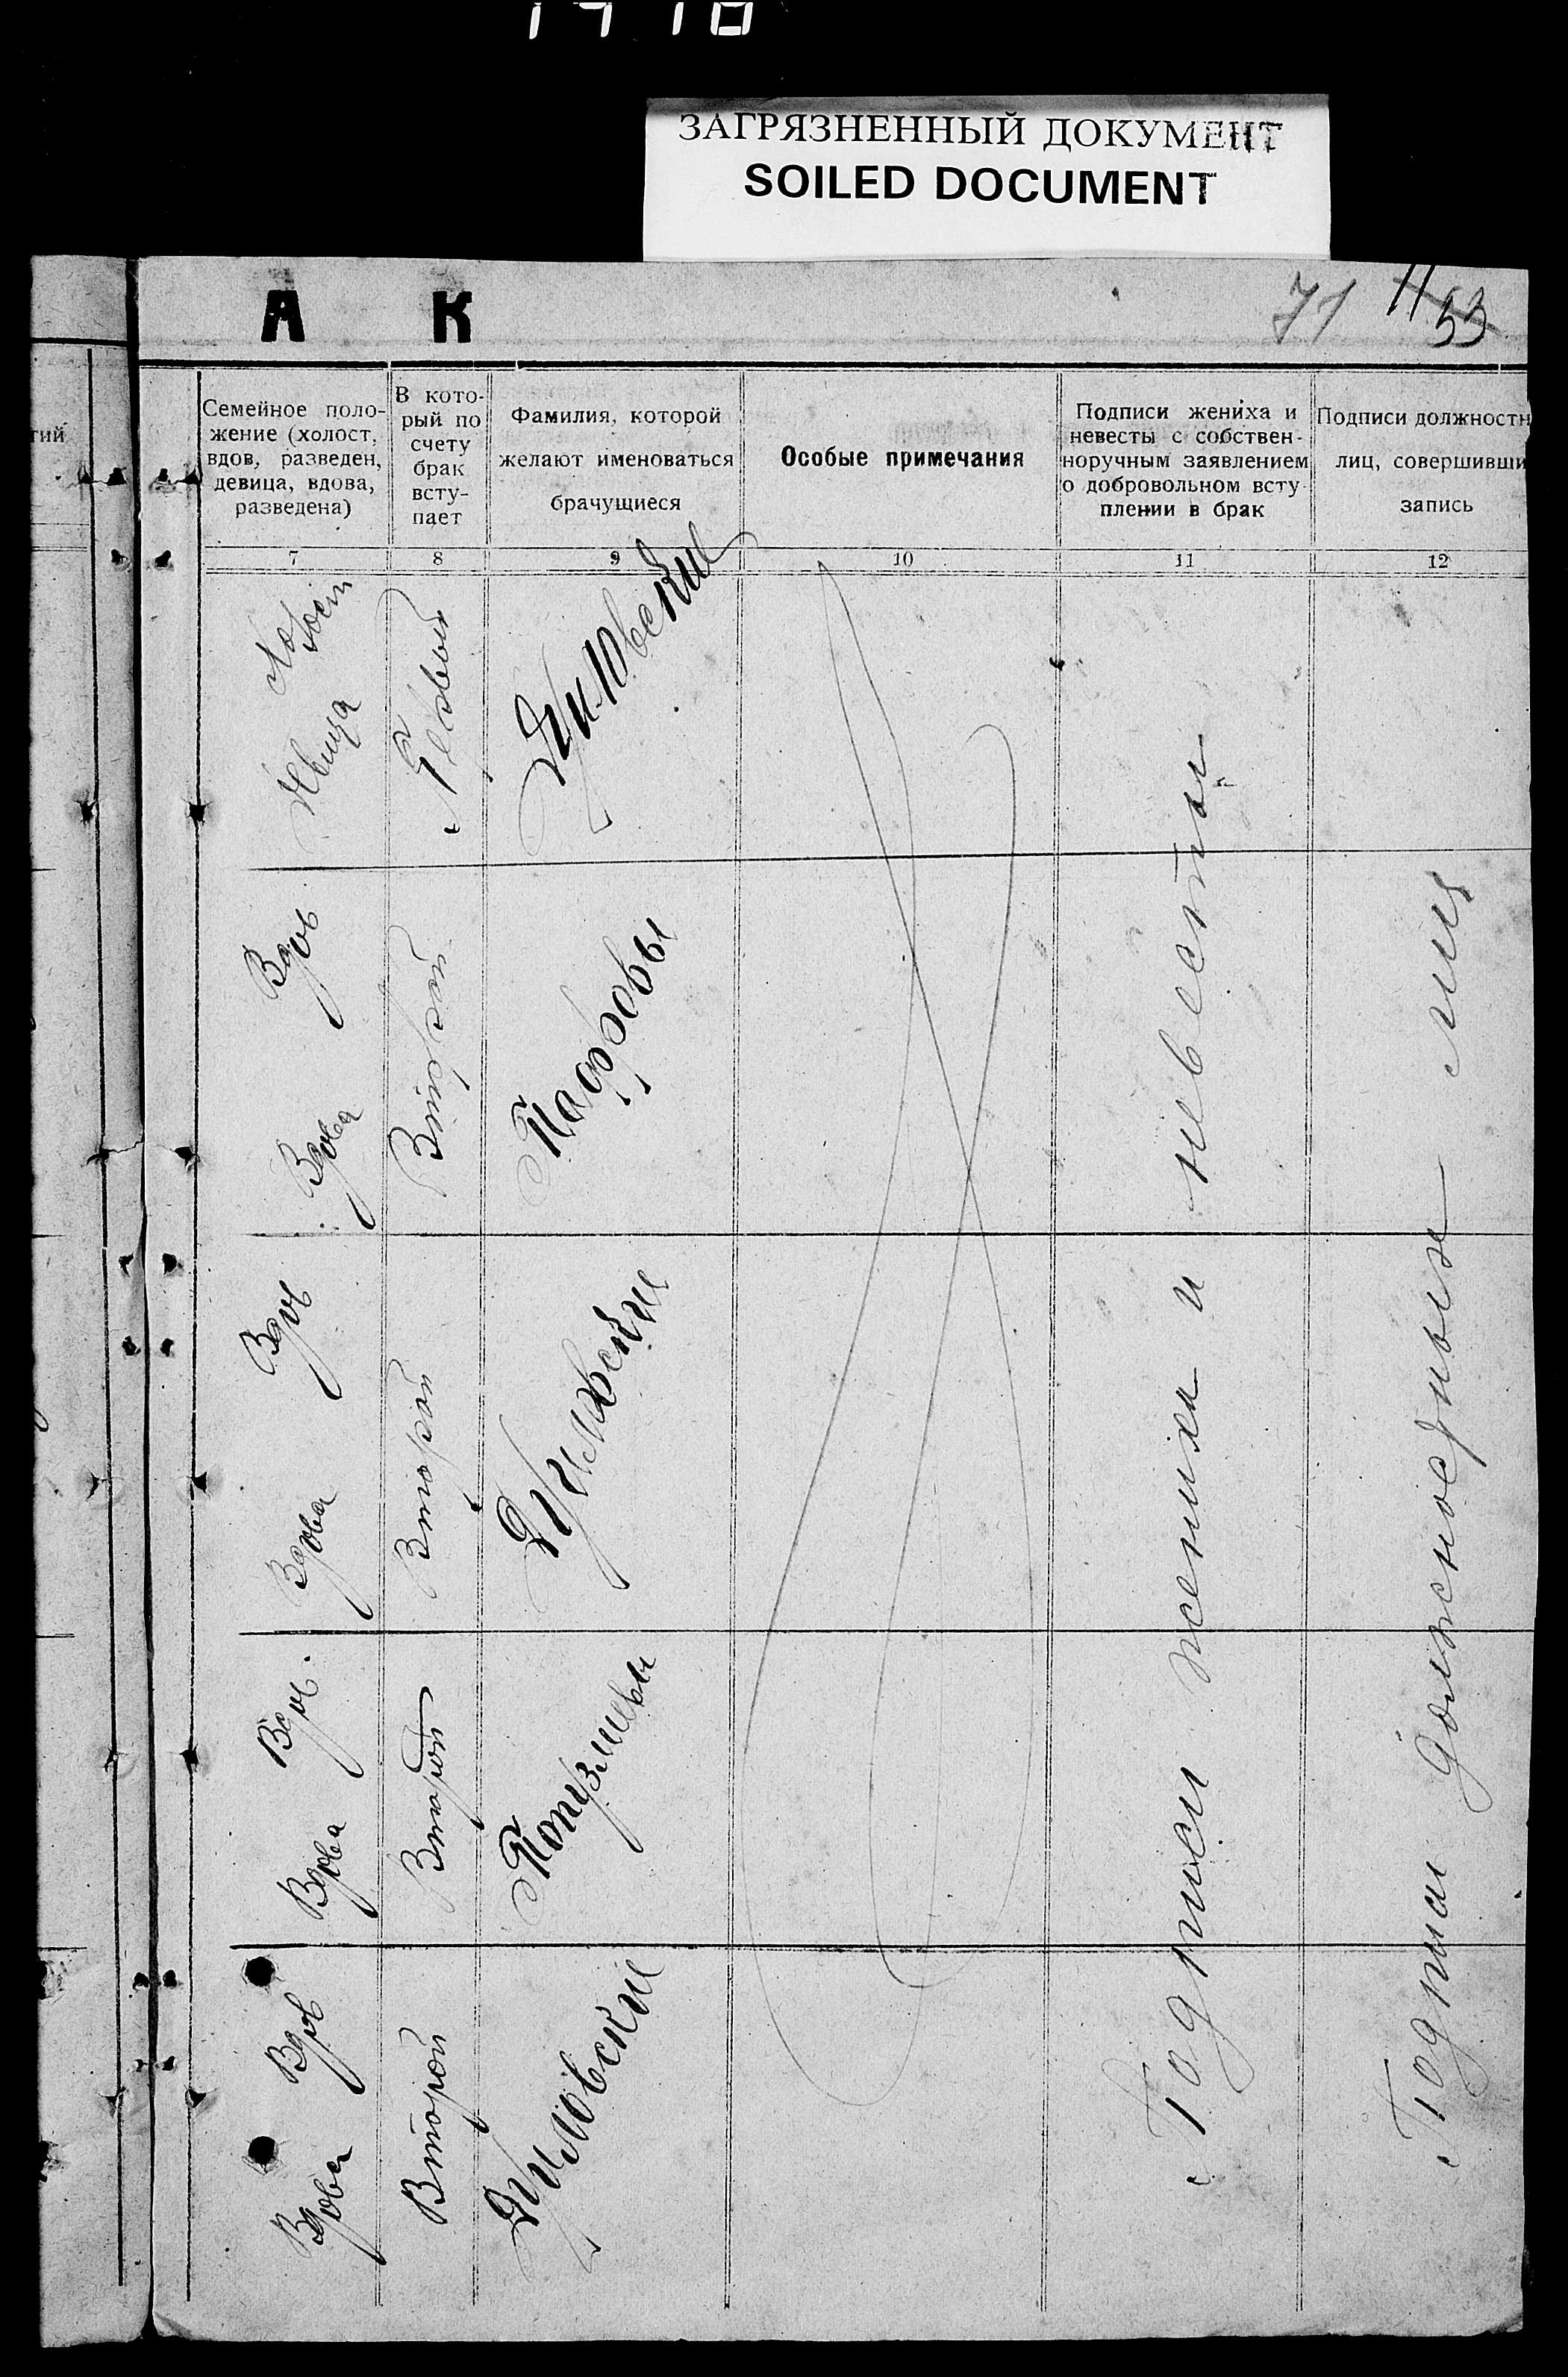 ЗАГРЯЗНЕННЫЙ ДОКУМЕНТ
SOILED DOCUMENT
А К
71
53
тий
Семейное поло-
жение (холост,
вдов, разведен,
девица, вдова,
разведена)
В кото-
рый по
счету
брак
всту-
пает
Фамилия, которой
желают именоваться
брачущиеся
Особые примечания
Подписи жениха и
невесты с собствен-
норучным заявлением
о добровольном всту-
плении в брак
Подписи должностн
лиц, совершивши
запись
7
8
9
10
11
12
Холост
Девица
Первый
Вдов
Вдова
Второй
Вдов
Вдова
Второй
Вдов.
Вдова
Второй
Вдов
Вдова
Второй
Подписи жениха и невесты
Подписи должностных лиц